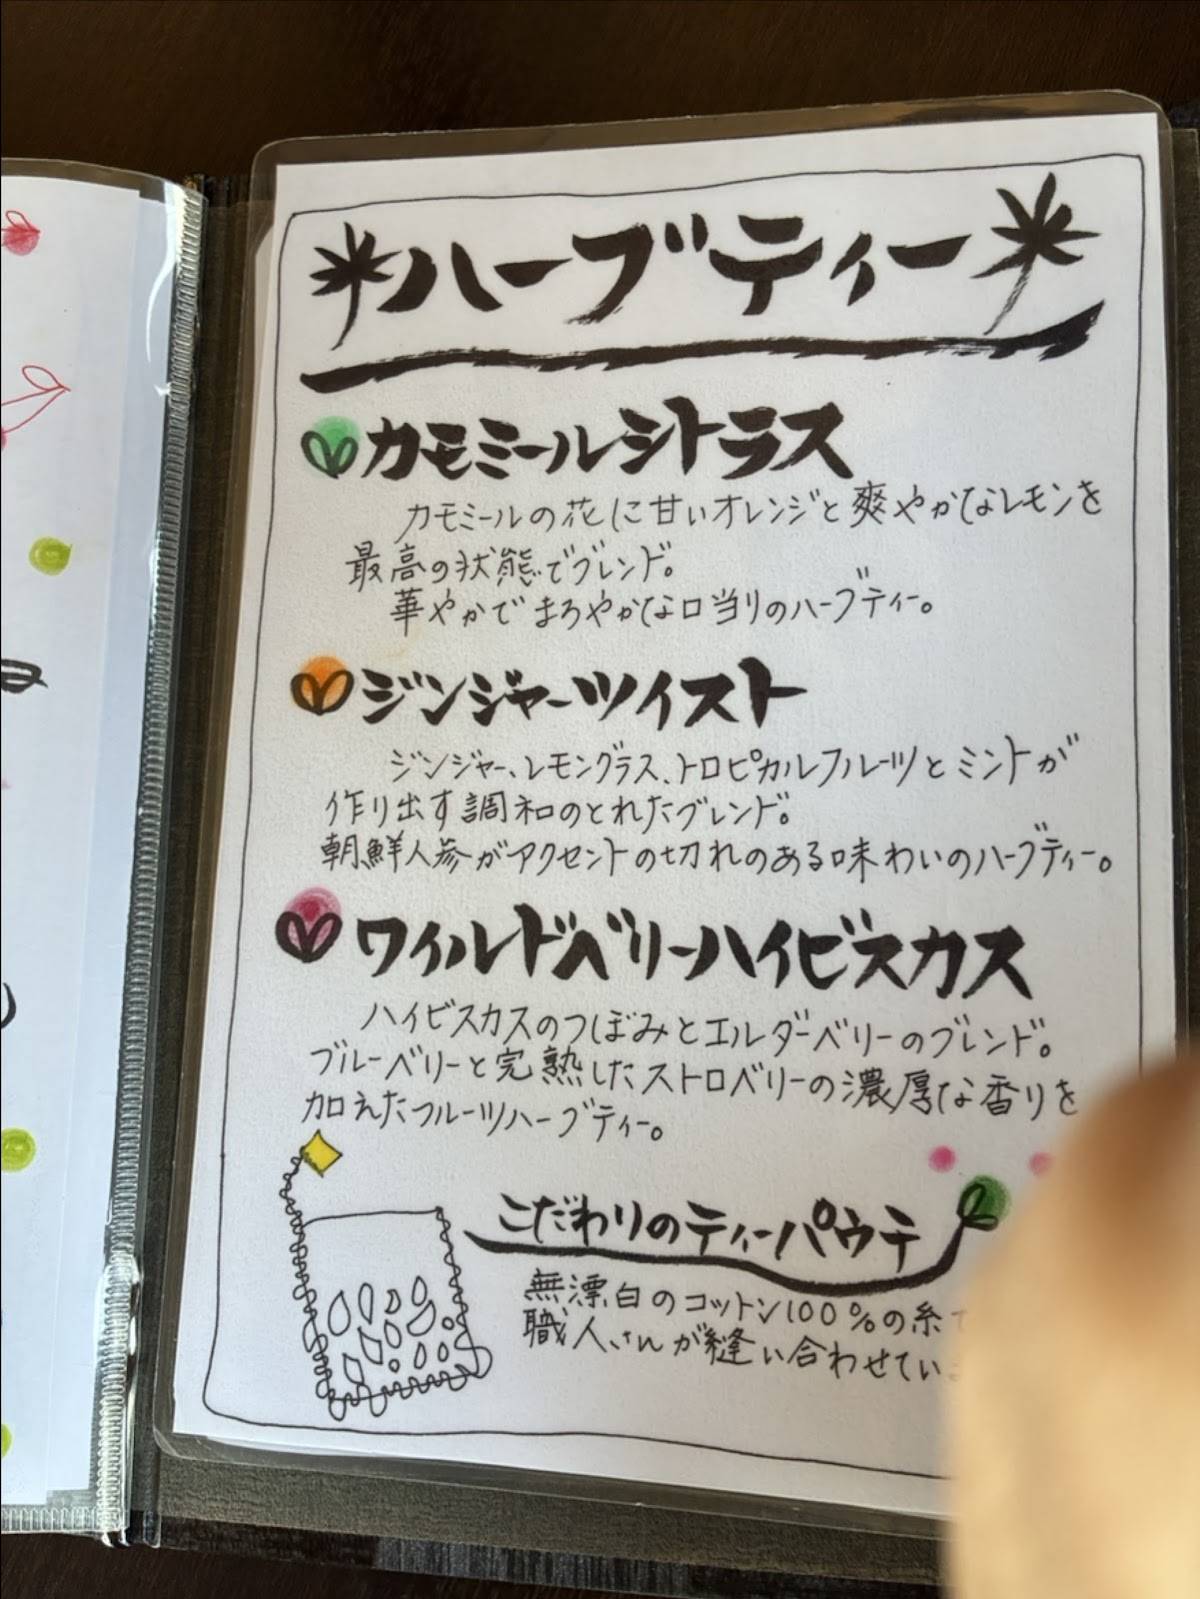 ハーブティー
カモミールシトラス
カモミールの花に甘いオレンジと爽やかなレモンを
最高の状態でブレンド。
華やかでまろやかな口当りのハーブティー。
ジンジャーツイスト
ジンジャー、レモングラス、トロピカルフルーツとミントが
作り出す調和のとれたブレンド。
朝鮮人参がアクセントの切れのある味わいのハーブティー。
ワイルドベリーハイビスカス
ハイビスカスのつぼみとエルダーベリーのブレンド。
ブルーベリーと完熟したストロベリーの濃厚な香りを
加えたフルーツハーブティー。
こだわりのティーパウチ
無漂白のコットン100%の糸で
職人さんが縫い合わせてい